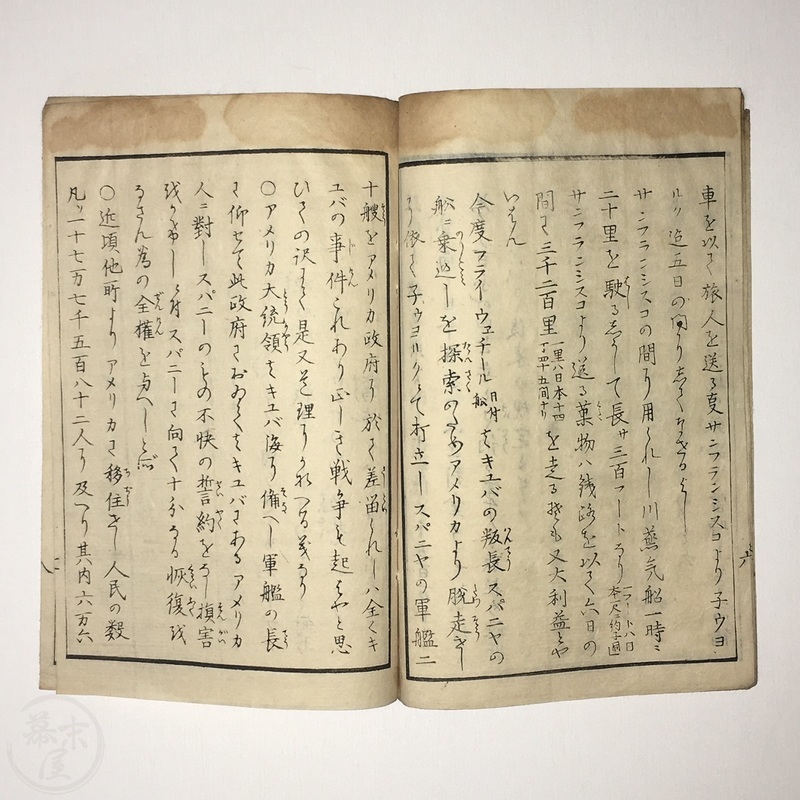 車を以て旅人を送る事サンフランシスコより子ウヨ
ルク迄五日の間に
サンフランシスコの間に用られし川蒸気船一時ニ
二十里を駛る長サ三百フートなり 一フートハ日本尺の約
サンフランシスコより送る菓物ハ鉄路を以て六日の
間に三千二百里 一里ハ日本十四丁四十五間ナリ を走る 又大利益とや
いはん
今度フライ ウュチール 船 はキュバの叛長スパニヤの
船ニ乗込しを探索のためアメリカより脱走
に依て子ウヨルクにて スパニヤの軍艦二
十艘をアメリカ政府に於て差留られしハ全くキ
ユバの事件これあり 戦争を起さばやと思
ひての訳にて是又 理り
○アメリカ大統領はキュバ海に備へし軍艦の長
に仰せて此政府に キュバにあるアメリカ
人ニ對しスパニーのもの不快の誓約をなし損害
スパニーに向て十分なる恢復
なさん為の全権を与へしと
○近頃他所よりアメリカに移住せし人民の数
凡ソ二十七万七千五百八十二人に及べり其内六万六
幕末屋